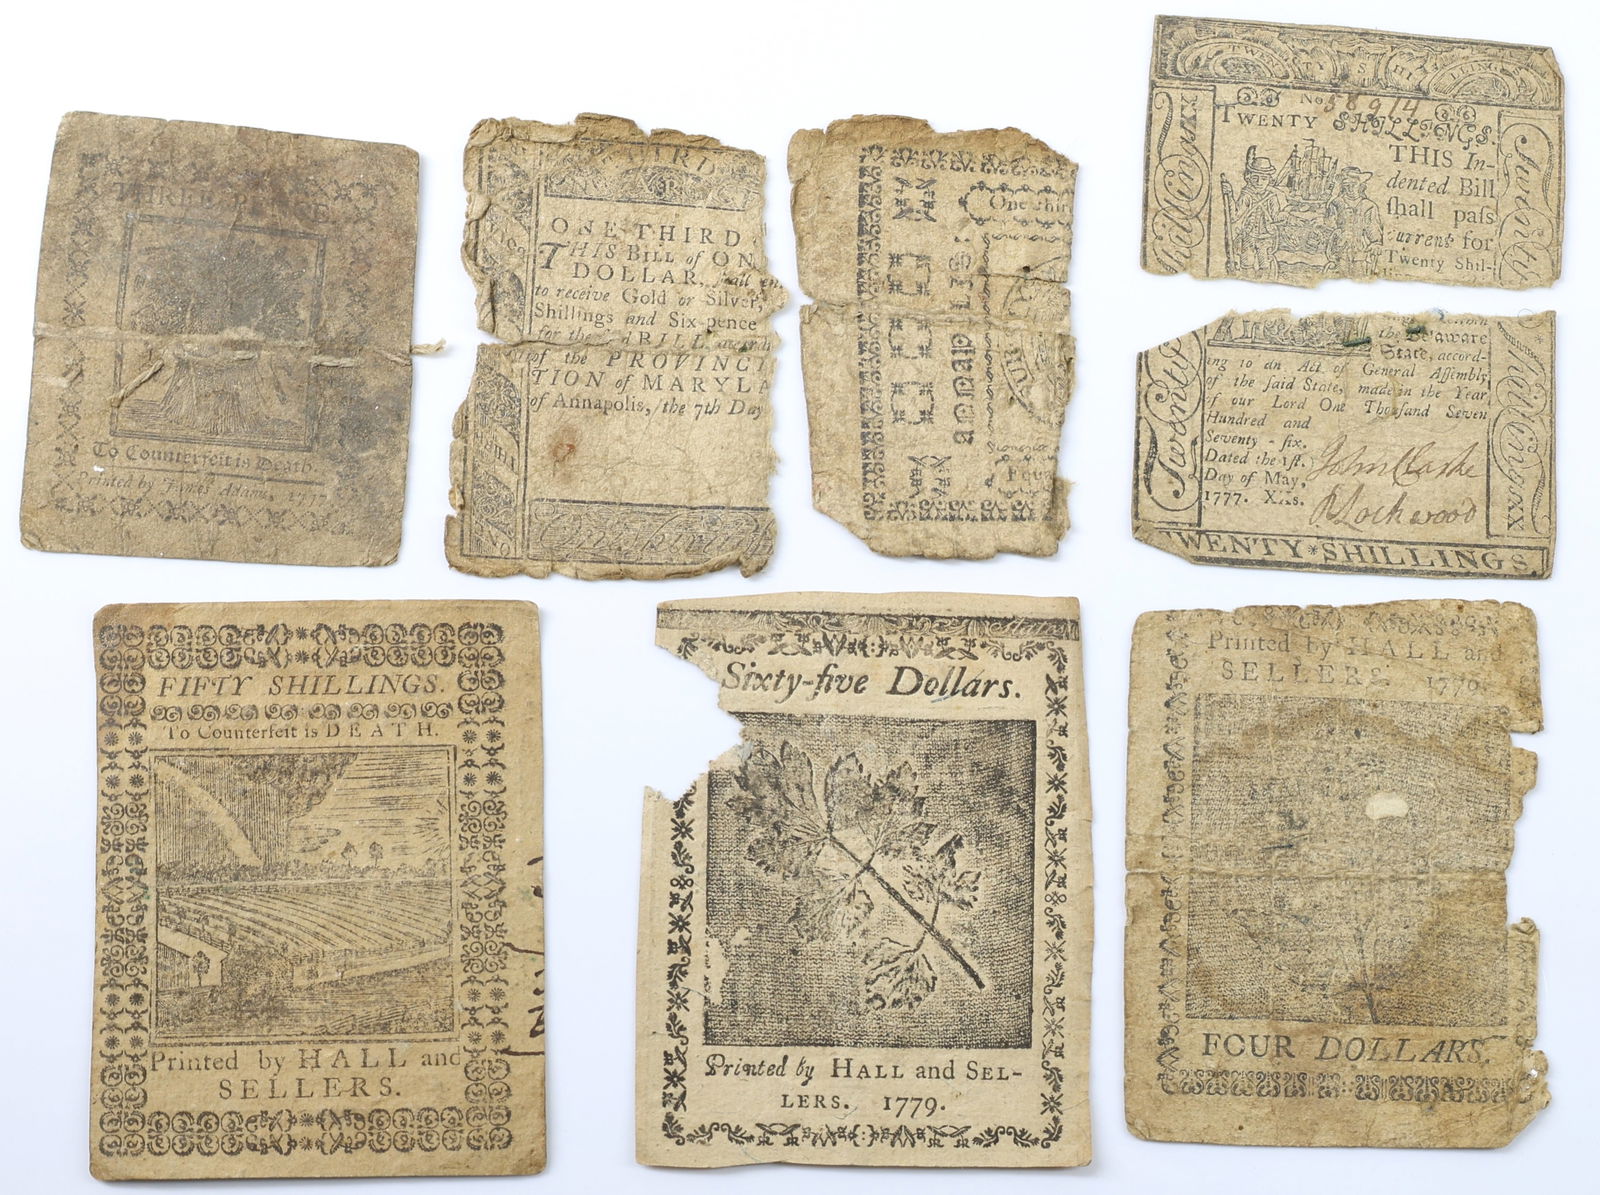 THREE PENCE.
To Counterfeit is Death.
Printed by James Adams, 177
ONE THIRD
THIS BILL of ON
DOLLAR, shall en
to receive Gold or Silver,
Shillings and Six-pence
for the said BILL, accord
of the PROVINCI
TION of MARYLA
of Annapolis, the 7th Day
One thir
ANNAPOLIS:
Four
TWENTY SHILLINGS
No. 58914
TWENTY SHILLINGS.
THIS In-
dented Bill
shall pass
current for
Twenty Shil-
Shillingsxx
Twenty
the Delaware
State, accord-
ing to an Act of General Assembly
of the said State, made in the Year
of our Lord One Thousand Seven
Hundred and
Seventy-six.
Dated the 1st.
Day of May.
1777. XXs.
John Clarke
R Lockwood
Twenty
Shillingsxx
TWENTY*SHILLINGS.
FIFTY SHILLINGS.
To Counterfeit is DEATH.
Printed by HALL and
SELLERS.
Sixty-five Dollars.
Printed by HALL and SEL-
LERS. 1779.
Printed by HALL and
SELLERS. 1779.
FOUR DOLLARS.